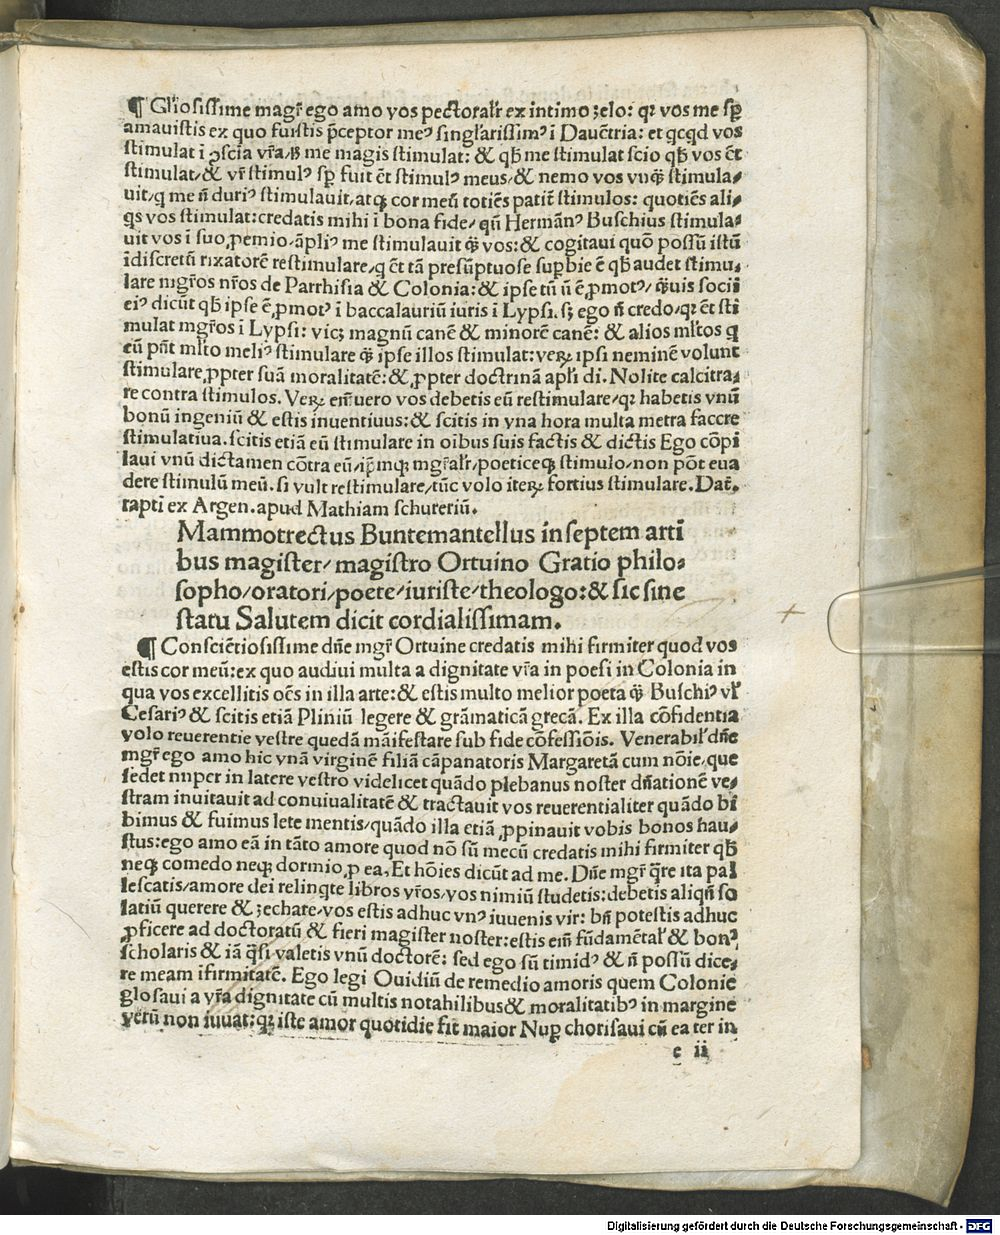 ¶ Gl'iosissime magr̃ ego amo vos pectoralr̃ ex intimo ꝫelo: qꝛ vos me sꝑ
amauistis ex quo fuistis p̃ceptor meꝰ singl'arissimꝰ ĩ Dauẽtria: et qcq̃d vos
stimulat ĩ ꝯscia vr̃a/ß me magis stimulat: & qb̃ me stimulat scio qb̃ vos ẽt
stimulat/& vr̃ stimulꝰ sꝑ fuit ẽt stimulꝰ meus/& nemo vos vnq̃ȝ stimula⸗
uit/q me ñ duriꝰ stimulauit/atqꝫ cor meũ totiẽs patit̃ stimulos: quotiẽs ali⸗
qs vos stimulat: credatis mihi ĩ bona fide/qñ Hermãnꝰ Buschius stimula⸗
uit vos ĩ suo ꝓemio/ãpliꝰ me stimulauit q̃ȝ vos: & cogitaui quõ possũ istũ
ĩdiscretũ rixatorẽ restimulare/q ẽt tã presũptuose supbie ẽ qb̃ audet stimu⸗
lare mgr̃os nr̃os de Parrhisia & Colonia: & ipse tñ ñ ẽ ꝓmotꝰ/ q̃uis socii
eiꝰ dicũt qb̃ ipse ẽ ꝓmotꝰ ĩ baccalauriũ iuris ĩ Lypsi. sꝫ ego ñ credo/qꝛ ẽt sti
mulat mgr̃os ĩ Lypsi: vicꝫ magnũ canẽ & minorẽ canẽ: & alios ml'tos q
eũ pñt ml'to meliꝰ stimulare q̃ȝ ipse illos stimulat: veꝝ ipsi neminẽ volunt
stimulare ꝓpter suã moralitatẽ: & ꝓpter doctrinã apl'i di. Nolite calcitra⸗
re contra stimulos. Veꝝ eñuero vos debetis eũ restimulare/qꝛ habetis vnũ
bonũ ingeniũ & estis inuentiuus: & scitis in vna hora multa metra facere
stimulatiua. scitis etiã eũ stimulare in oibus suis factis & dictis Ego cõpi
laui vnũ dictamen cõtra eũ/ip̃mqꝫ mgr̃alr̃/poeticeqꝫ stimulo/non põt eua
dere stimulũ meũ. si vult restimulare/tũc volo iteꝝ fortius stimulare. Dat̃.
rapti ex Argen. apud Mathiam schureriũ.
Mammotrectus Buntemantellus in septem arti
bus magister/magistro Ortuino Gratio philo⸗
sopho/oratori/poete/iuriste/theologo: & sic sine
statu Salutem dicit cordialissimam.
¶ Consciẽtiosissime dñe mgr̃ Ortuine credatis mihi firmiter quod vos
estis cor meũ: ex quo audiui multa a dignitate vr̃a in poesi in Colonia in
qua vos excellitis oẽs in illa arte: & estis multo melior poeta q̃ȝ Buschiꝰ vl'
Cesariꝰ & scitis etiã Pliniũ legere & grãmaticã grecã. Ex illa cõfidentia
volo reuerentie vestre quedã mãifestare sub fide cõfessiõis. Venerabil' dñe
mgr̃ ego amo hic vnã virginẽ filiã cãpanatoris Margaretã cum nõie/que
sedet nuper in latere vestro videlicet quãdo plebanus noster dñationẽ ve⸗
stram inuitauit ad conuiualitatẽ & tractauit vos reuerentialiter quãdo bi
bimus & fuimus lete mentis/quãdo illa etiã ꝓpinauit vobis bonos hau⸗
stus: ego amo eã in tãto amore quod nõ sũ mecũ credatis mihi firmiter qb̃
neqꝫ comedo neqꝫ dormio ꝓ ea. Et hõies dicũt ad me. Dñe mgr̃ q̃re ita pal
lescatis/amore dei relinq̃te libros vr̃os/vos nimiũ studetis: debetis aliqñ so
latiũ querere & ꝫechare/vos estis adhuc vnꝰ iuuenis vir: bñ potestis adhuc
ꝓficere ad doctoratũ & fieri magister noster: estis eñ fũdamẽtal' & bonꝰ
scholaris & iã q̃si valetis vnũ doctorẽ: sed ego sũ timidꝰ & ñ possũ dice⸗
re meam ifirmitatẽ. Ego legi Ouidiũ de remedio amoris quem Colonie
glosaui a vr̃a dignitate cũ multis notabilibus & moralitatibꝰ in margine
verũ non iuuat: qꝛ iste amor quotidie fit maior Nuꝑ chorisaui cũ ea ter in
e ii
Digitalisierung gefördert durch die Deutsche Forschungsgemeinschaft - DFG